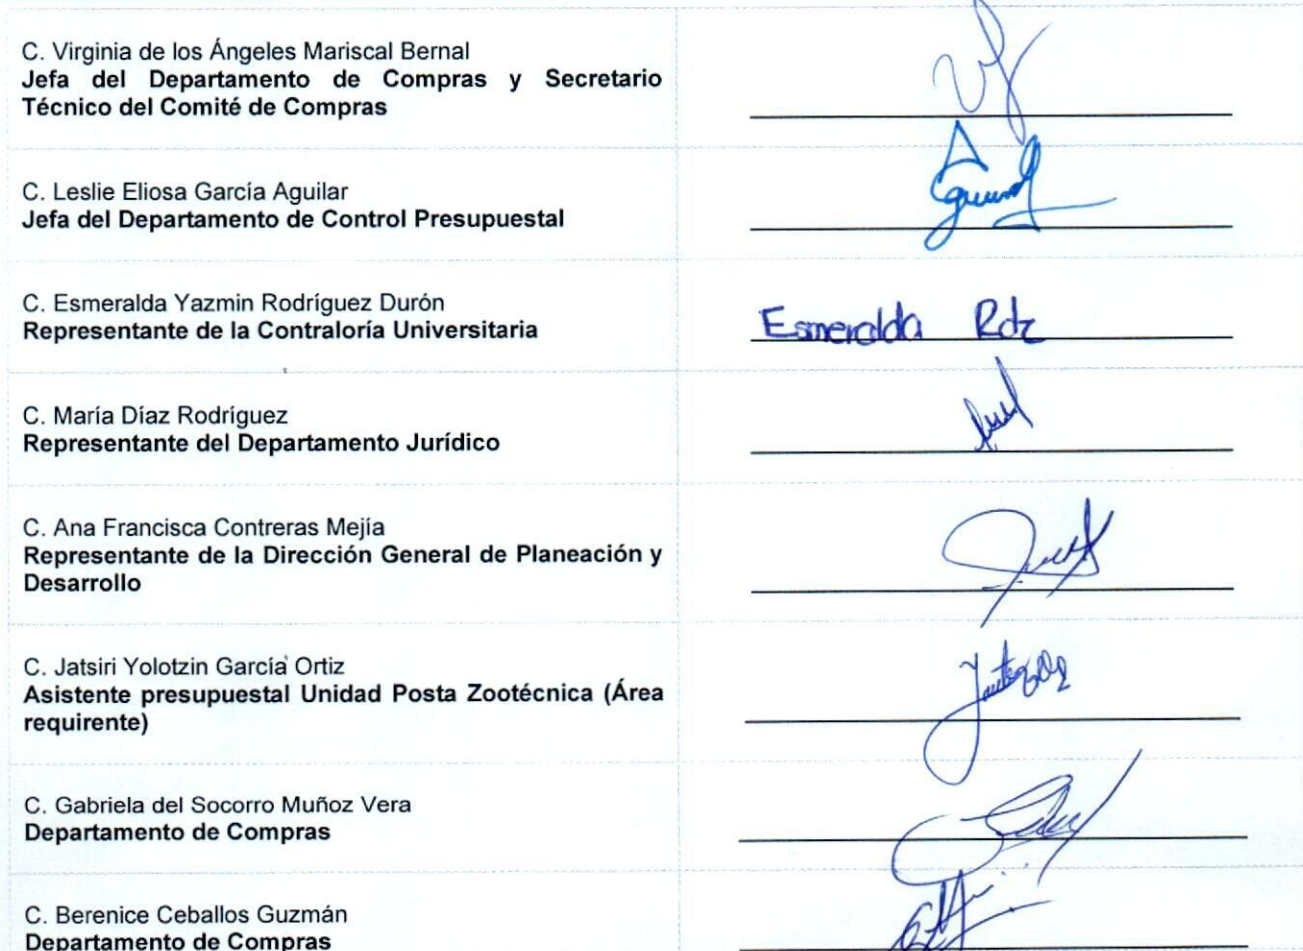 C. Virginia de los Ángeles Mariscal Bernal
Jefa del Departamento de Compras y Secretario
Técnico del Comité de Compras
C. Leslie Eliosa García Aguilar
Jefa del Departamento de Control Presupuestal
C. Esmeralda Yazmin Rodríguez Durón
Representante de la Contraloría Universitaria
Esmeralda Rdz
C. María Díaz Rodríguez
Representante del Departamento Jurídico
C. Ana Francisca Contreras Mejía
Representante de la Dirección General de Planeación y
Desarrollo
C. Jatsiri Yolotzin García Ortiz
Asistente presupuestal Unidad Posta Zootécnica (Área
requirente)
C. Gabriela del Socorro Muñoz Vera
Departamento de Compras
C. Berenice Ceballos Guzmán
Departamento de Compras